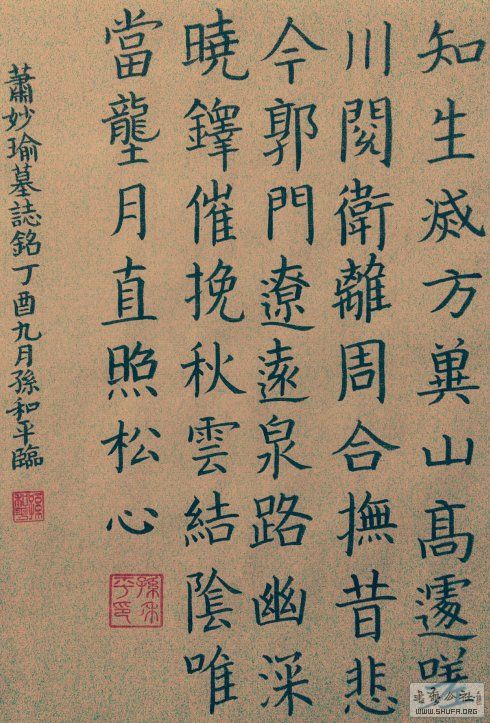 知生滅方冀山髙遽嗟
川閲衛離周合撫昔悲
今郭門遼遠泉路幽深
曉鐸催挽秋雲結陰唯
當壟月直照松心
孫和平印
蕭妙瑜墓誌銘丁酉九月孫和平臨
WWW.SHUFA.ORG